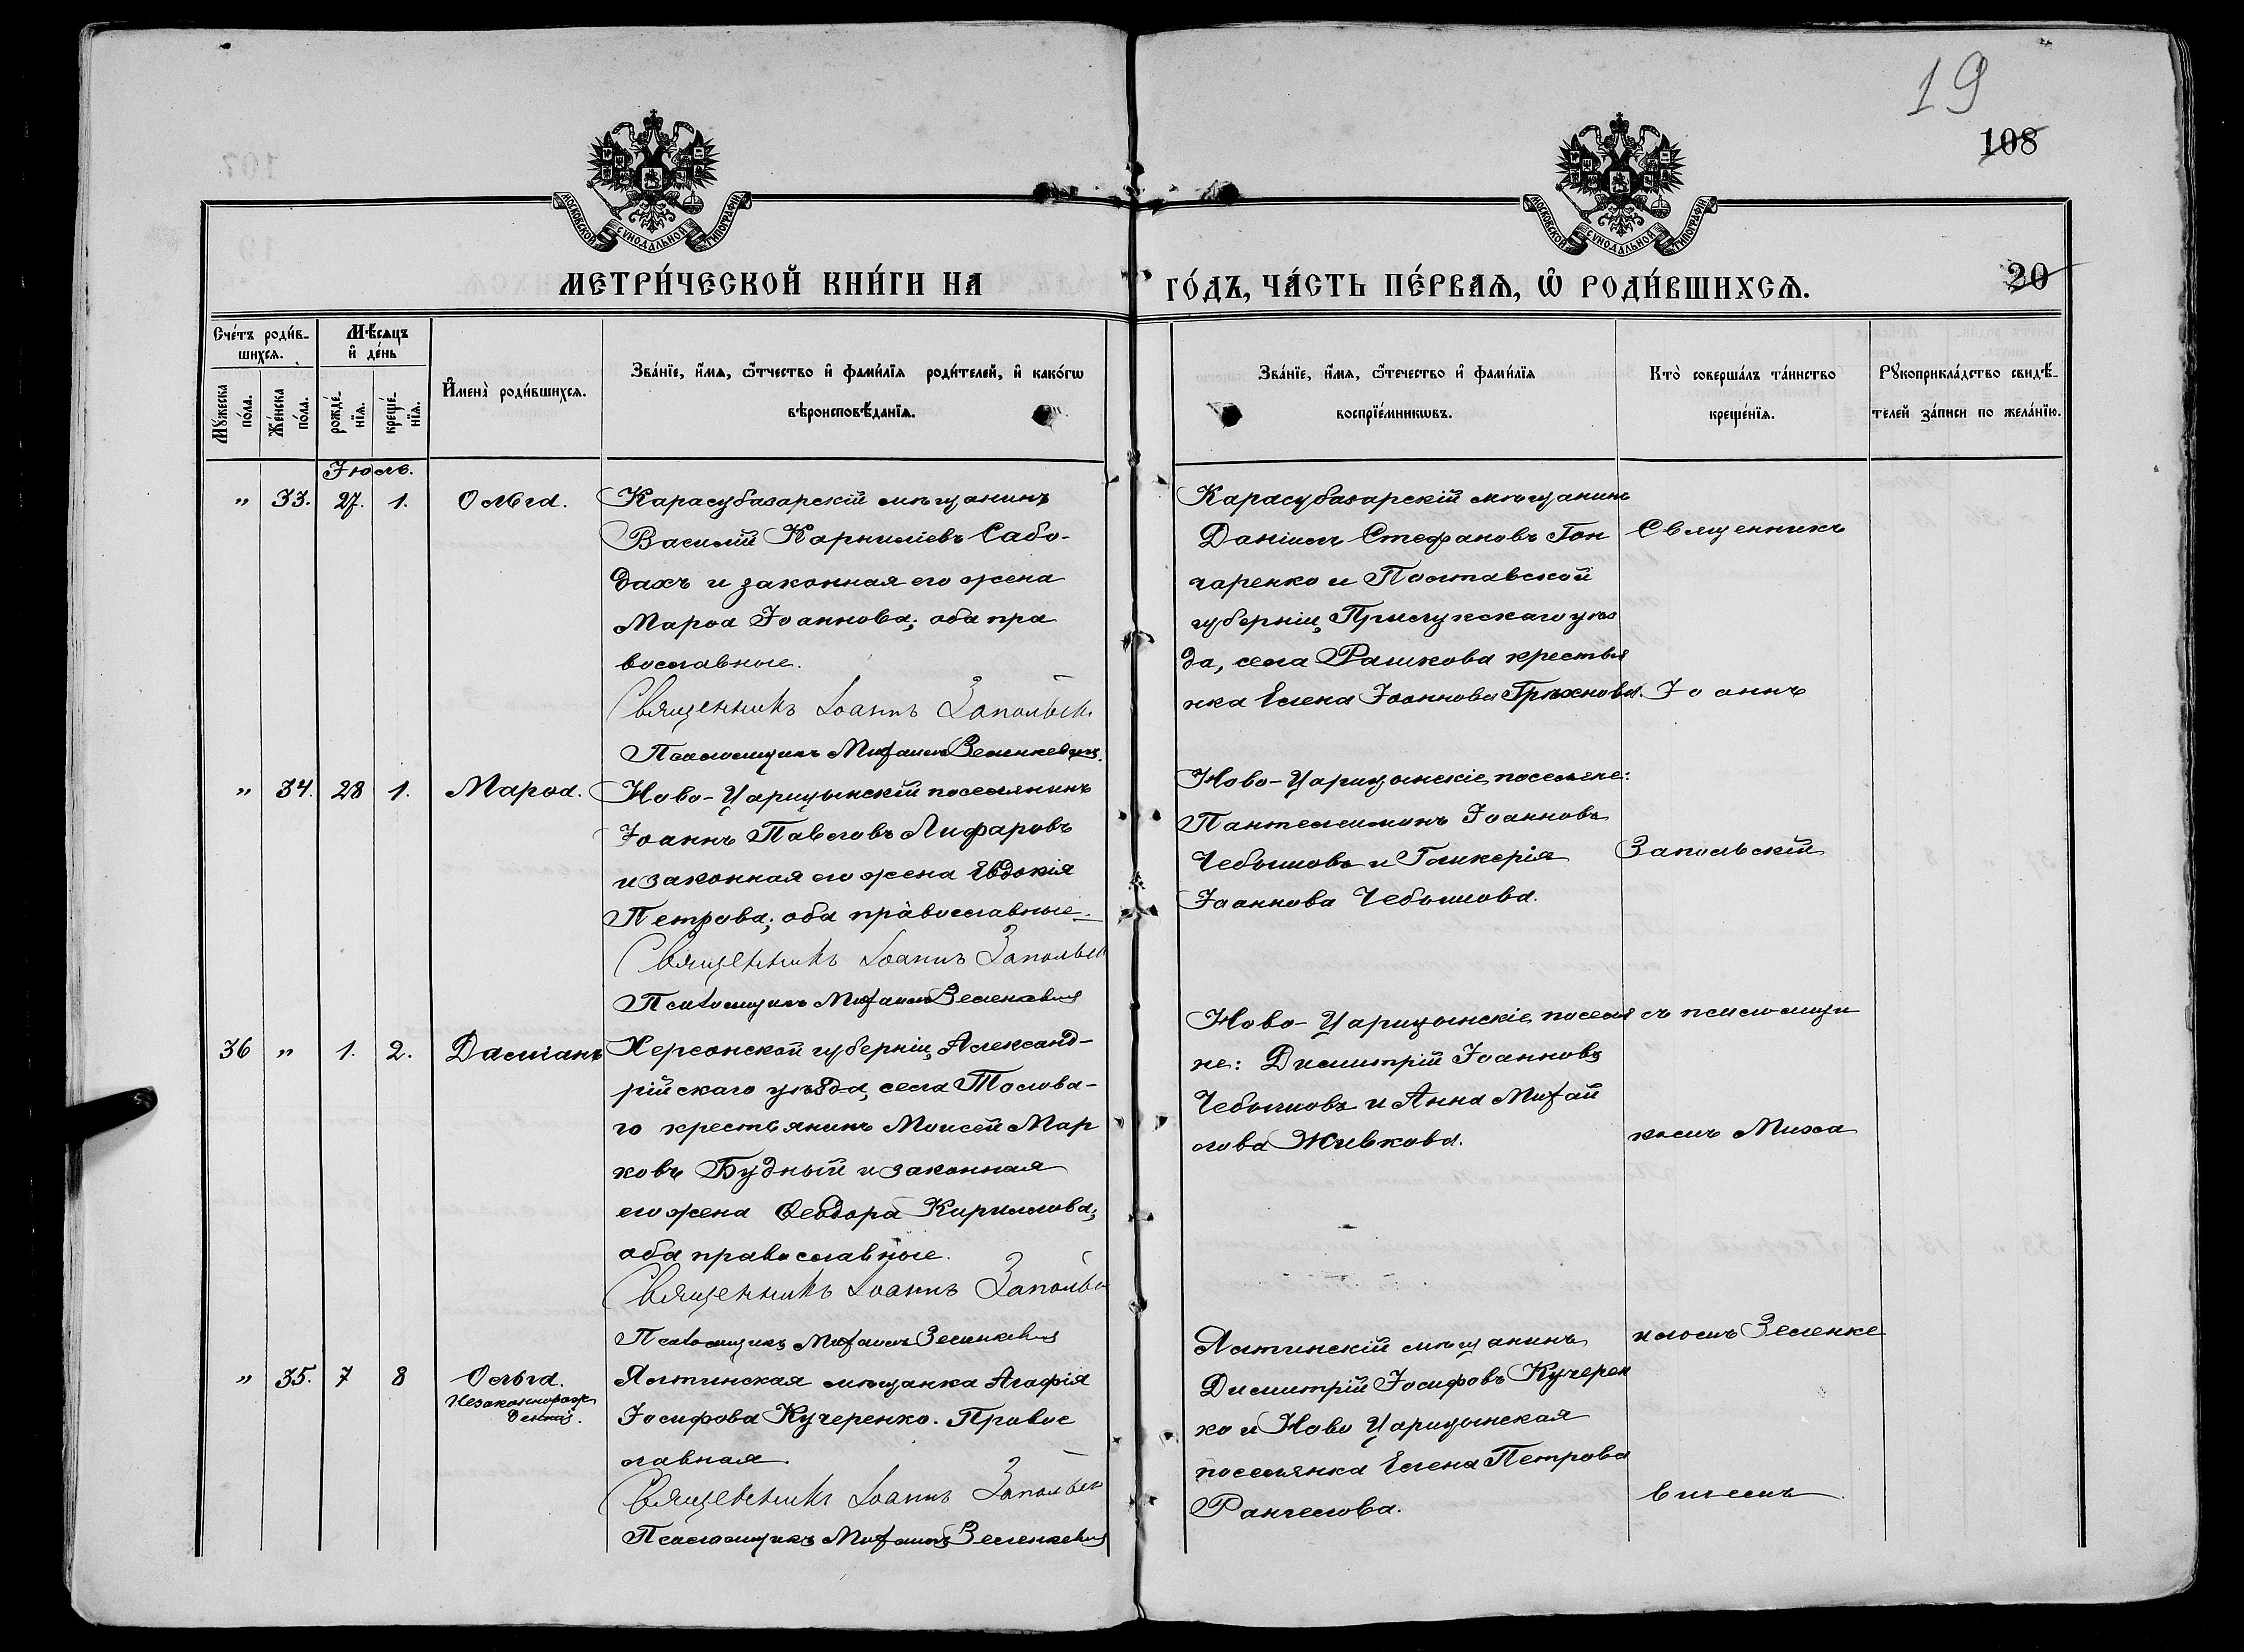 19
108
МОСКОВСКОЙ СѴНОДАЛЬНОЙ ТИПОГРАФІИ
МОСКОВСКОЙ СѴНОДАЛЬНОЙ ТИПОГРАФІИ
МЕТРИ́ЧЕСКОЙ КНИ́ГИ НА
ГО́ДЪ, ЧА́СТЬ ПЕ́РВАѦ, Ѿ РОДИ́ВШИХСѦ.
20
Сче́тъ роди́в-
шихсѧ.
Мꙋ́жеска по́ла.
Же́нска по́ла.
Мѣ́сѧцъ
и҆ де́нь
рожде́-нїѧ.
креще́-нїѧ.
И҆мена̀ роди́вшихсѧ.
Зва́нїе, и҆́мѧ, ѻ҆́тчество и҆ фами́лїѧ роди́телей, и҆ како́гѡ
вѣроисповѣ́данїѧ.
Зва́нїе, и҆́мѧ, ѻ҆́течество и҆ фами́лїѧ
воспрїе́мникѡвъ.
Кто̀ соверша́лъ та́инство
креще́нїѧ.
Рꙋкоприкла́дство свидѣ́-
телей за́писи по жела́нїю.
Іюль.
" 33. 27. 1. Ольга. Карасубазарскій мѣщанинъ
Василій Карниліевъ Сабо-
дахъ и законная его жена
Марѳа Іоаннова; оба пра
вославные.
Священникъ Іоаннъ Запольск
Псаломщикъ Михаилъ Зеленкевичъ.
Карасубазарскій мѣщанинъ
Даніилъ Стефановъ Гон
чаренко и Полтавской
губерніи, Прилукскаго уѣз
да, села Рашкова крестья
нка Елена Іоаннова
Священникъ
Іоаннъ
" 34. 28 1. Марѳа. Ново-Царицынскій поселянинъ
Іоаннъ Павловъ Лифаровъ
и законная его жена Евдокія
Петрова; оба православные.
Священникъ Іоаннъ Запольск
Псаломщикъ Михаилъ Зеленкевич
Ново-Царицынскіе поселяне:
Пантелеимонъ Іоанновъ
Чебышовъ и Гликерія
Іоаннова Чебышова.
Запольскій
36 " 1. 2. Даміанъ Херсонской губерніи, Александ-
рійскаго уѣзда, села
го крестьянинъ Моисей Мар
ковъ Будный и законная
его жена Ѳеодора Кириллова;
оба православные.
Священникъ Іоаннъ Запольск
Псаломщикъ Михаилъ Зеленкевич
Ново-Царицынскіе поселя
не: Димитрій Іоанновъ
Чебышовъ и Анна Михай
лова Живкова.
съ псаломщи
комъ Миха
" 35. 7 8 Ольга.
незаконнорож
денная.
Ялтинская мѣщанка Агафія
Іосифова Кучеренко. Правос
лавная.
Священникъ Іоаннъ Запольск
Псаломщикъ Михаилъ Зеленкевич
Ялтинскій мѣщанинъ
Димитрій Іосифовъ Кучерен
ко и Ново Царицынская
поселянка Елена Петрова
Рангелова.
иломъ Зеленке
вичемъ